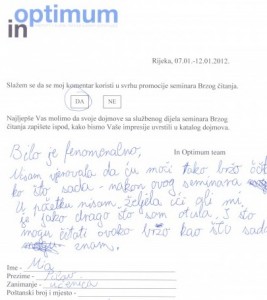 optimum
in
Rijeka, 07.01.-12.01.2012.
Slažem se da se moj komentar koristi u svrhu promocije seminara Brzog čitanja.
DA NE
Najljepše Vas molimo da svoje dojmove sa službenog dijela seminara Brzog
čitanja zapišete ispod, kako bismo Vaše impresije uvrstili u katalog dojmova.
In Optimum team
Bilo je fenomenalno,
Nisam vjerovala da ću moći tako brzo čita
ko što sada - nakon ovog seminara
U početku nisam željela ići ali mi
je jako drago što sam otišla. I što
mogu čitati ovako brzo kao što sada
znam.
Ime - Mia
Prezime -
Zanimanje - učenica
Poštanski broj i mjesto -